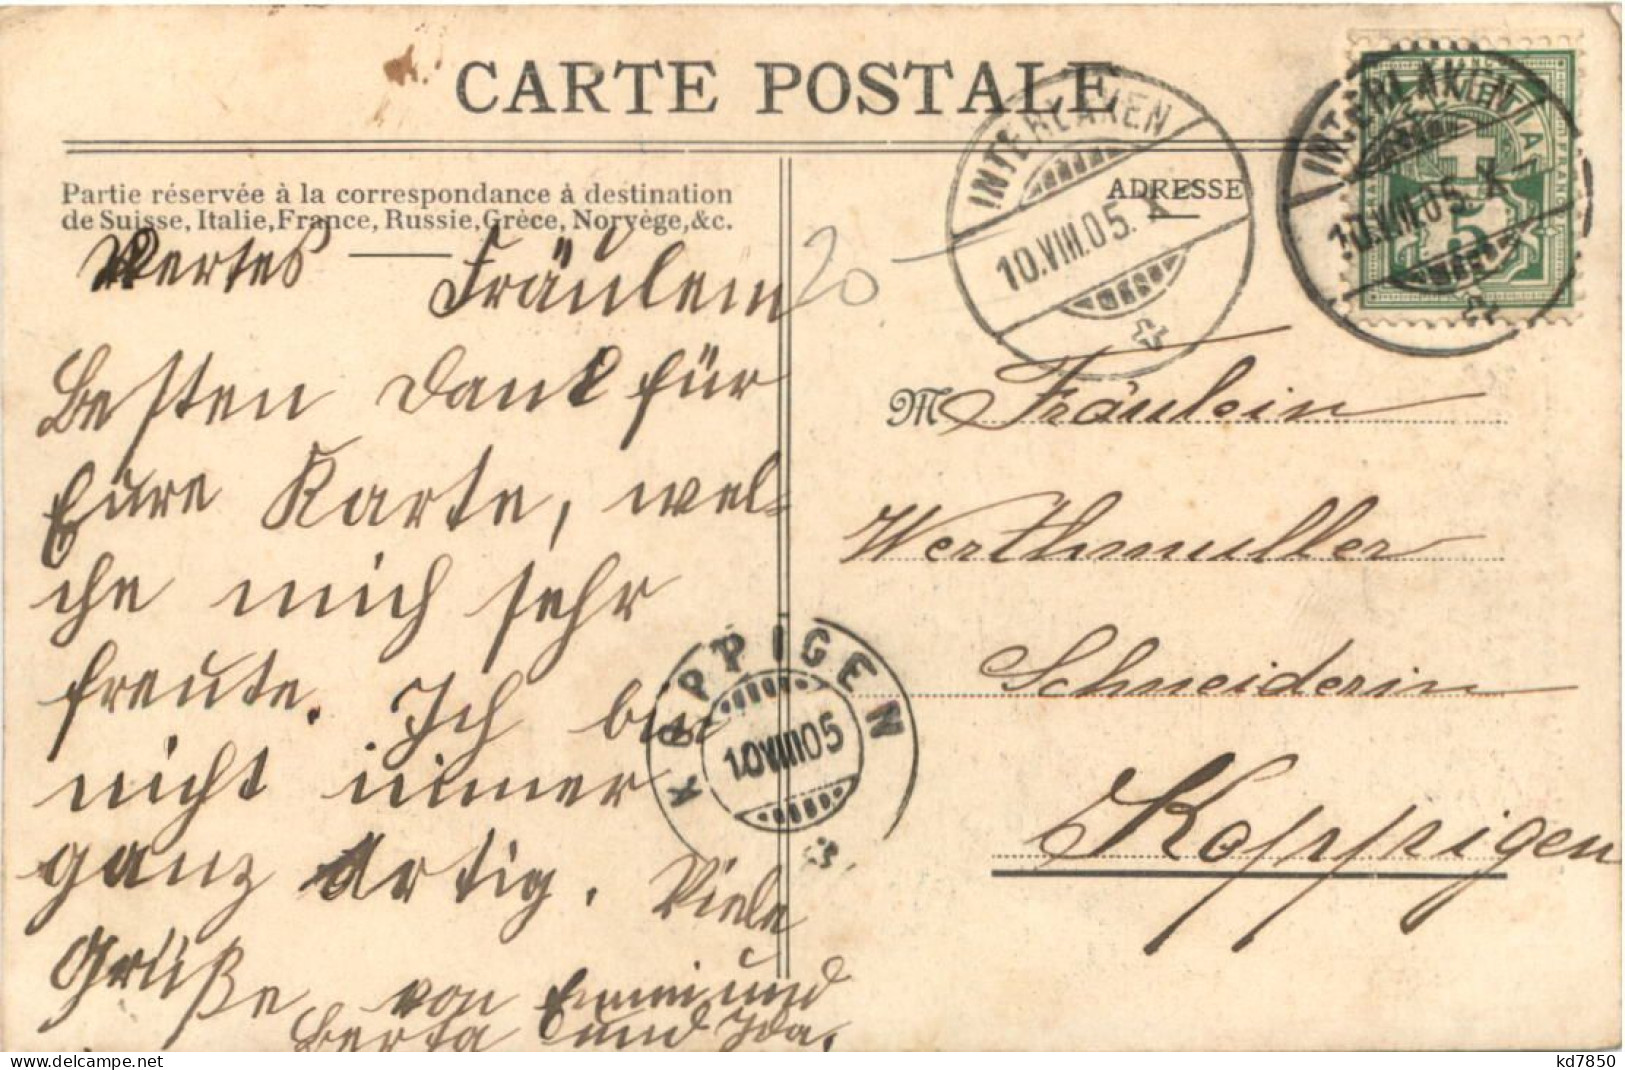 CARTE POSTALE
Partie réservée à la correspondance à destination
de Suisse, Italie, France, Russie, Grèce, Norvège, &c.
ADRESSE
INTERLAKEN
10.VIII.05. X
INTERLAKEN
10.VIII.05. X
FRANCO
5
20
Wertes Fräulein
Besten Dank für
Eure Karte, wel-
che mich sehr
freute. Ich bin
nicht immer
ganz artig. Viele
Grüße von Emmi und
Berta und Ida.
M Fräulein
Werthmuller
Schneiderin
Koppigen
KOPPIGEN
10 VIII 05
delcampe.net
kd7850